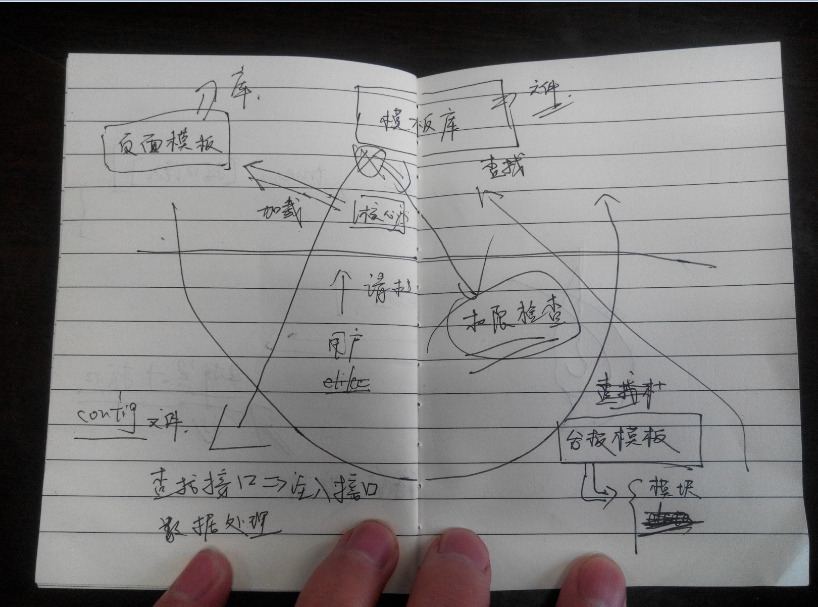 库.
模板库
文件
页面模板
查找
加载
核心
请求
权限检查
用户
config 文件
台板模板
查找接口⇒注入接口
模块
数据处理